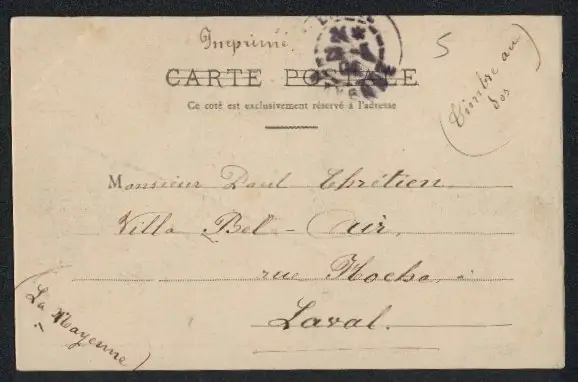 Imprimé
5
(Timbre au
dos)
CARTE POSTALE
Ce coté est exclusivement réservé à l'adresse
Monsieur Paul Chrétien
Villa Bel-Air,
rue Hoche, à
Laval.
(La Mayenne)